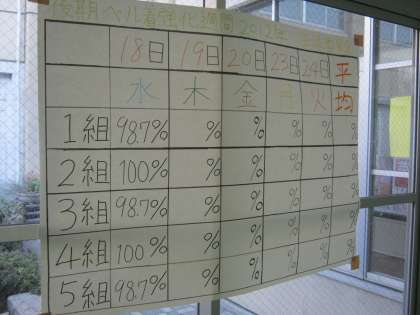 後期ベル着強化週間 2012年
18日 19日 20日 23日 24日 平均
水 木 金 月 火
1組 98.7% % % % %
2組 100% % % % %
3組 98.7% % % % %
4組 100% % % % %
5組 98.7% % % % %